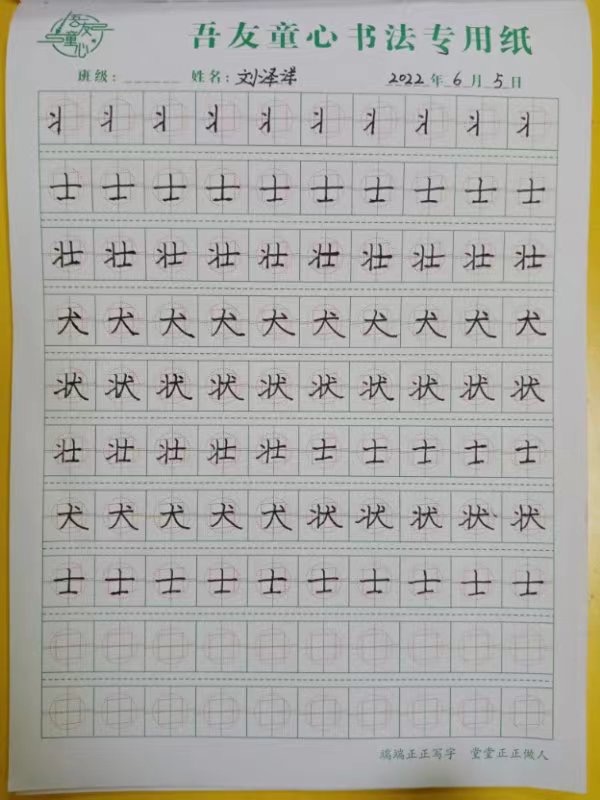 吾友童心
吾友童心书法专用纸
班级：______ 姓名：刘泽洋 2022年6月5日
丬丬丬丬丬丬丬丬丬丬
士士士士士士士士士士
壮壮壮壮壮壮壮壮壮壮
犬犬犬犬犬犬犬犬犬犬
状状状状状状状状状状
壮壮壮壮壮士士士士士
犬犬犬犬犬状状状状状
士士士士士士士士士士
端端正正写字 堂堂正正做人